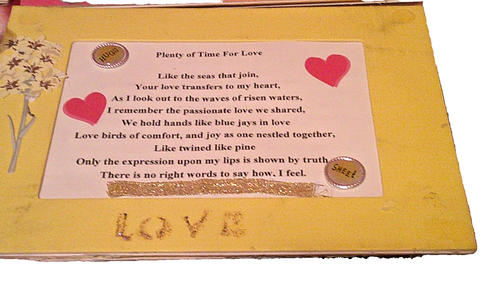 HUGS
Plenty of Time For Love
Like the seas that join,
Your love transfers to my heart,
As I look out to the waves of risen waters,
I remember the passionate love we shared,
We hold hands like blue jays in love
Love birds of comfort, and joy as one nestled together,
Like twined like pine
Only the expression upon my lips is shown by truth
There is no right words to say how, I feel.
SWEET
LOVE